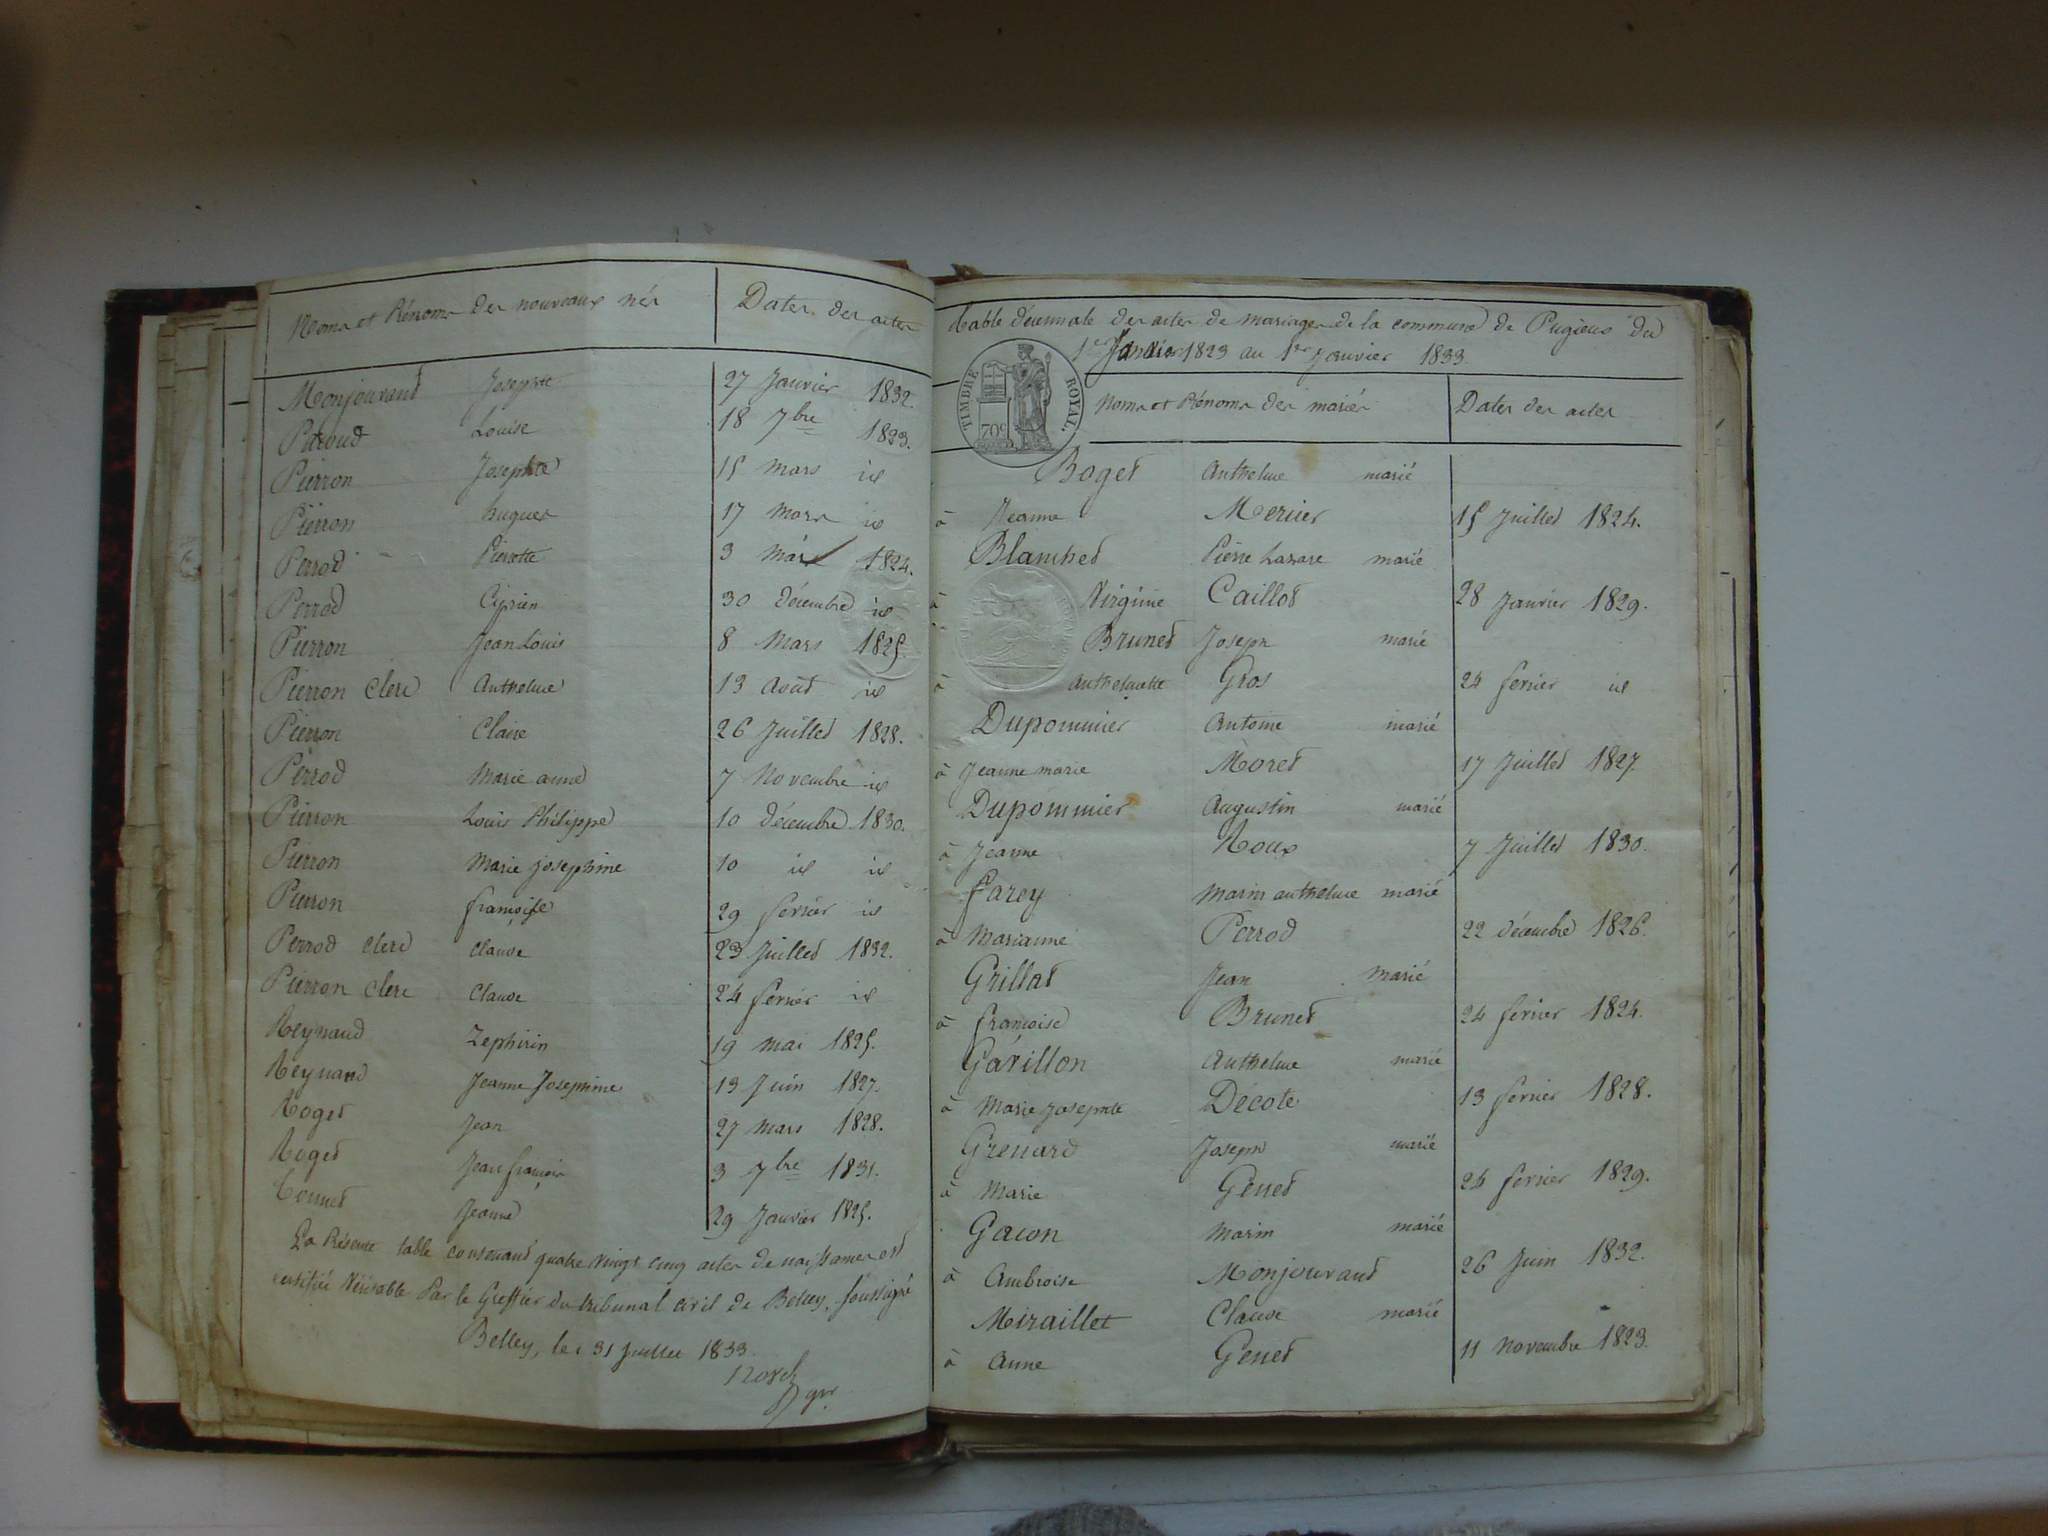 Noms et Prénoms des nouveaux nés Dates des actes
Monjouvand Josephte 27 Janvier 1832.
Paroud Louise 18 7bre 1823.
Pierron Josephte 15 mars id
Pierron hugues 17 mars id
Perrod Pierrotte 3 mars 1824.
Perrod Ciprien 30 décembre id
Pierron Jean Louis 8 Mars 1825.
Pierron Clerc Anthelme 13 Août id
Pierron Claire 26 Juillet 1828.
Perrod Marie anne 7 Novembre id
Pierron Louis Philippe 10 décembre 1830.
Pierron Marie Josephine 10 id id
Pierron françoise 29 fevrier id
Perrod clerc claude 23 Juillet 1832.
Pierron Clerc Claude 24 fevrier id
Reynaud Zephirin 19 mai 1825.
Reynaud Jeanne Josephine 13 Juin 1827.
Roget Jean 27 mars 1828.
Roget Jean françois 3 7bre 1831.
Connet Jeanne 29 Janvier 1825.
La Présente table contenant quatre vingt cinq actes de naissances est
certifiée Véritable Par le Greffier du tribunal civil de Belley, soussigné
Belley, le 31 Juillet 1833
grr
table décennale des actes de mariages de la commune de Pugieus du
1er Janvier 1823 au 1er Janvier 1833
TIMBRE ROYAL.
70c
Noms et Prénoms des mariés Dates des actes
Boget Anthelme marié
à Jeanne Mercier 15 Juillet 1824.
Blanchet Pierre Lazare marié
à Virginie Caillot 28 Janvier 1829.
Brunet Joseph marié
à anthelmette Gros 24 fevrier id
Dupommier Antoine marié
à Jeanne marie Moret 17 Juillet 1827.
Dupommier Augustin marié
à Jeanne Roux 7 Juillet 1830.
farey Marin anthelme marié
à Marianne Perrod 22 décembre 1826.
Grillat Jean Marié
à françoise Brunet 24 fevrier 1824.
Gavillon Anthelme marié
à Marie Josephte Décote 13 fevrier 1828.
Grenard Joseph marié
à Marie Genet 24 fevrier 1829.
Gacon Marin marié
à Ambroise Monjouvand 26 Juin 1832.
Miraillet Claude marié
à Anne Genet 11 Novembre 1823.